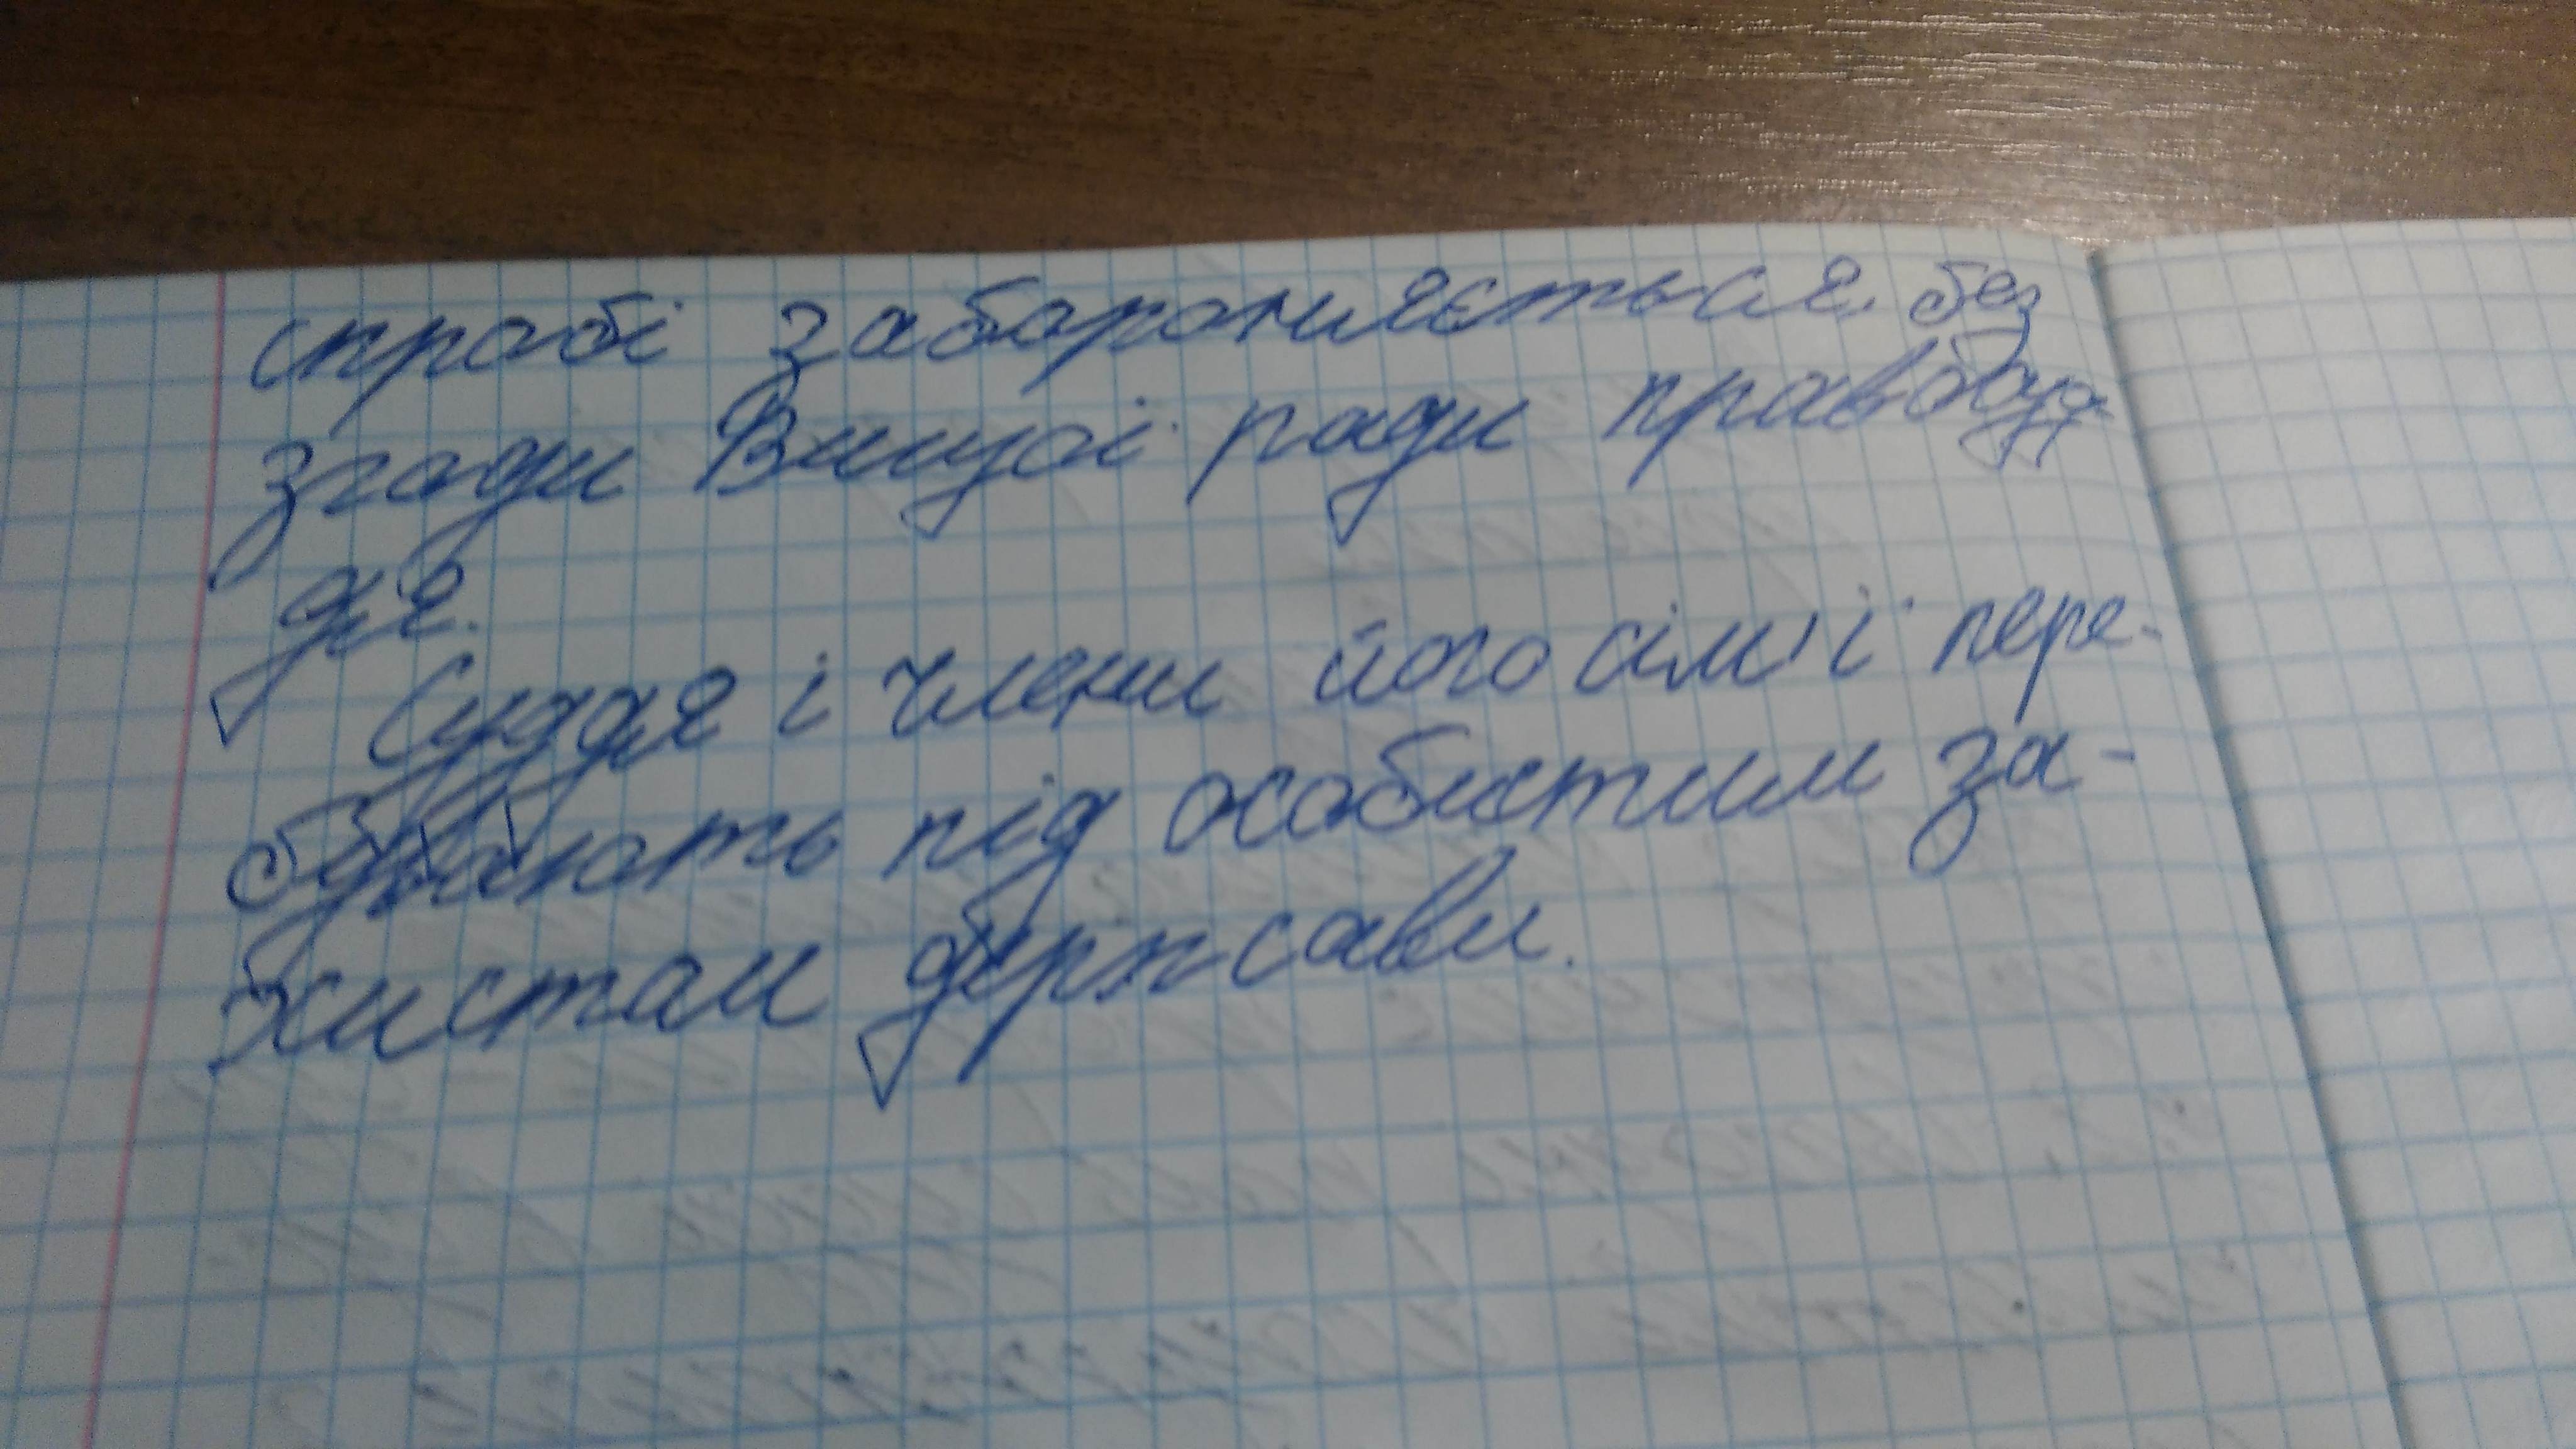 справі забороняється без
згоди Вищої ради правосуд
дя.
Суддя і члени його сім'ї пере-
бувають під особистим за-
хистом держави.